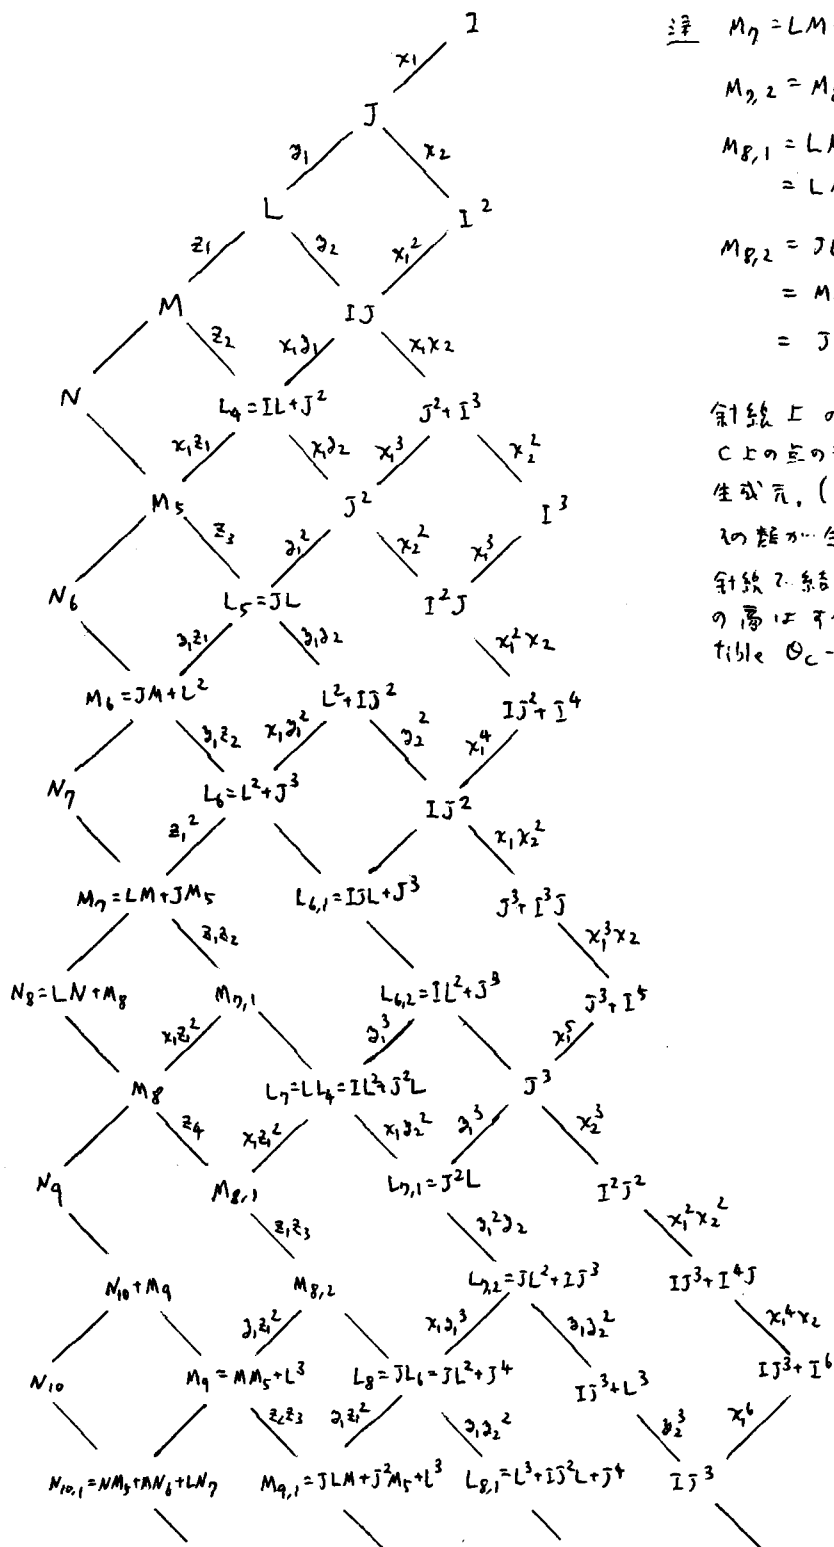 I
x₁
J
y₁ x₂
L I²
z₁ y₂ x₁²
M IJ
z₂ x₁y₁ x₁x₂
N L₄=IL+J² J²+I³
x₁z₁ x₁y₂ x₁³ x₂²
M₅ J² I³
z₃ y₁² x₂² x₁³
N₆ L₅=JL I²J
y₁z₁ y₁y₂ x₁²x₂
M₆=JM+L² L²+IJ² IJ²+I⁴
y₁z₂ x₁y₁² y₂² x₁⁴
N₇ L₆=L²+J³ IJ²
z₁² x₁x₂²
M₇=LM+JM₅ L₆,₁=IJL+J³ J³+I³J
z₁z₂ x₁³x₂
N₈=LN+M₈ M₇,₁ L₆,₂=IL²+J³ J³+I⁵
x₁z₁² y₁³ x₁⁵
M₈ L₇=LL₄=IL²+J²L J³
z₄ x₁z₁² x₁y₂² y₁³ x₂³
N₉ M₈,₁ L₇,₁=J²L I²J²
z₁z₃ y₁²y₂ x₁²x₂²
N₁₀+M₉ M₈,₂ L₇,₂=JL²+IJ³ IJ³+I⁴J
y₁z₁² x₁y₁³ y₁y₂² x₁⁴x₂
N₁₀ M₉=MM₅+L³ L₈=JL₆=JL²+J⁴ IJ³+L³ IJ³+I⁶
z₂z₃ y₁z₁² y₁y₂² y₂³ x₁⁶
N₁₀,₁=NM₅+MN₆+LN₇ M₉,₁=JLM+J²M₅+L³ L₈,₁=L³+IJ²L+J⁴ IJ³
注 M₇=LM
M₇,₂=M₈
M₈,₁=LM
=LM
M₈,₂=JL
=M
=J
斜線上の
C上の点の
生成元. (
その類が 生
斜線で結
の商はす
tible O_C-